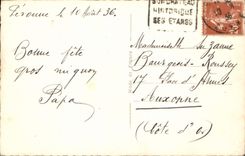 Péronne le 10 Août 36.
Bonne fête
gros
Papa
SON CHATEAU
HISTORIQUE
SES ETANGS
Mademoiselle Suzanne
Bourgeois-Roussey
17
Auxonne
(Côte d'Or)